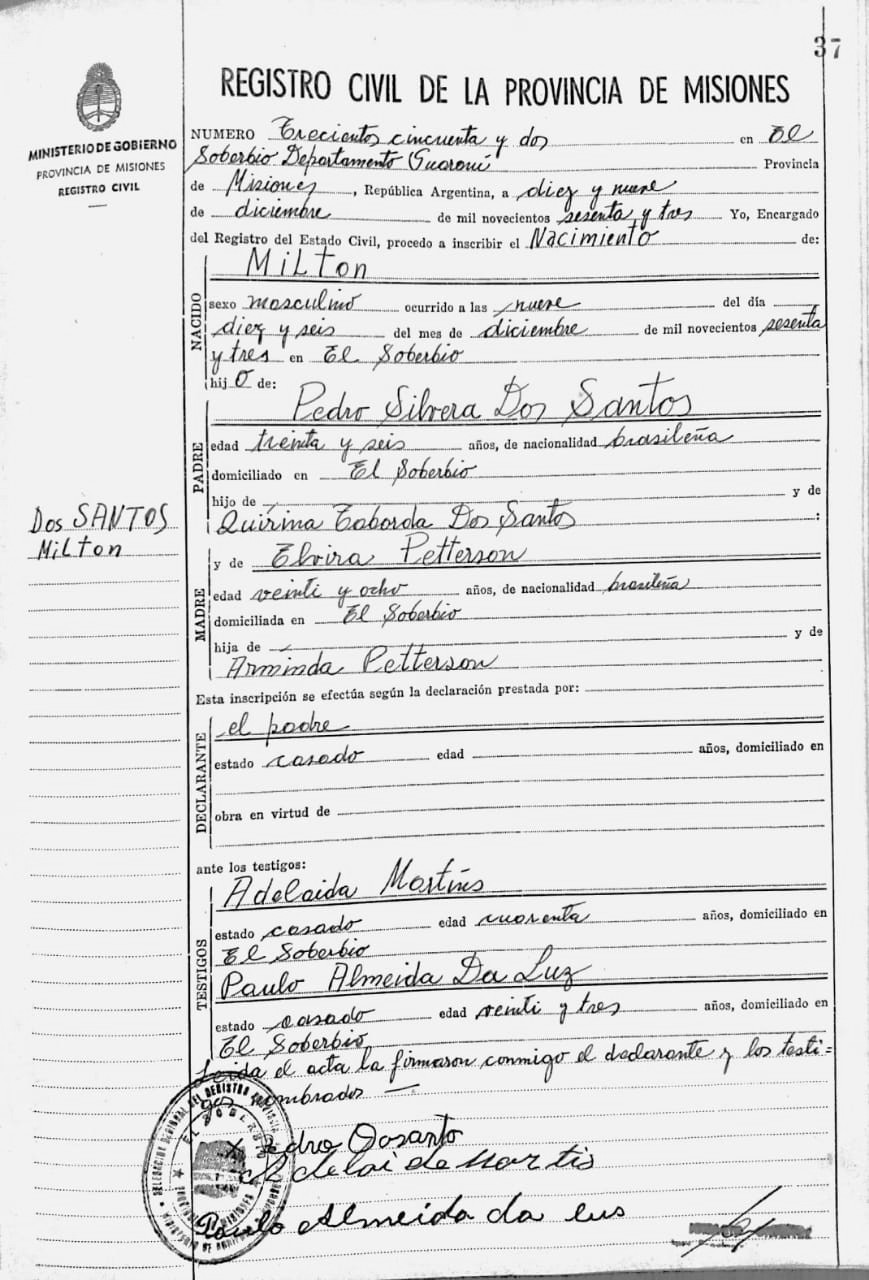 37
REGISTRO CIVIL DE LA PROVINCIA DE MISIONES
MINISTERIO DE GOBIERNO
PROVINCIA DE MISIONES
REGISTRO CIVIL
NUMERO Trecientos cincuenta y dos en El
Soberbio Departamento Guaraní Provincia
de Misiones, República Argentina, a diez y nueve
de diciembre de mil novecientos sesenta y tres Yo, Encargado
del Registro del Estado Civil, procedo a inscribir el Nacimiento de:
MiLton
NACIDO
sexo masculino ocurrido a las nueve del día
diez y seis del mes de diciembre de mil novecientos sesenta
y tres en El Soberbio
hijo de:
Pedro Silvera Dos Santos
PADRE
edad treinta y seis años, de nacionalidad brasileña
domiciliado en El Soberbio
hijo de y de
Quirina Taborda Dos Santos :
Dos SANTOS
MiLton
y de Elvira Petterson
MADRE
edad veinti y ocho años, de nacionalidad brasileña
domiciliada en El Soberbio
hija de y de
Arminda Petterson
Esta inscripción se efectúa según la declaración prestada por:
DECLARANTE
el padre
estado casado edad años, domiciliado en
obra en virtud de
ante los testigos:
TESTIGOS
Adelaida Martiñs
estado casado edad cuarenta años, domiciliado en
El Soberbio
Paulo Almeida Da Luz
estado casado edad veinti y tres años, domiciliado en
El Soberbio
Leida el acta la firmaron conmigo el declarante y los testi=
gos nombrados —
EL SOBERBIO
Pedro Dosanto
Adelai de Martis
Paulo Almeida da lus